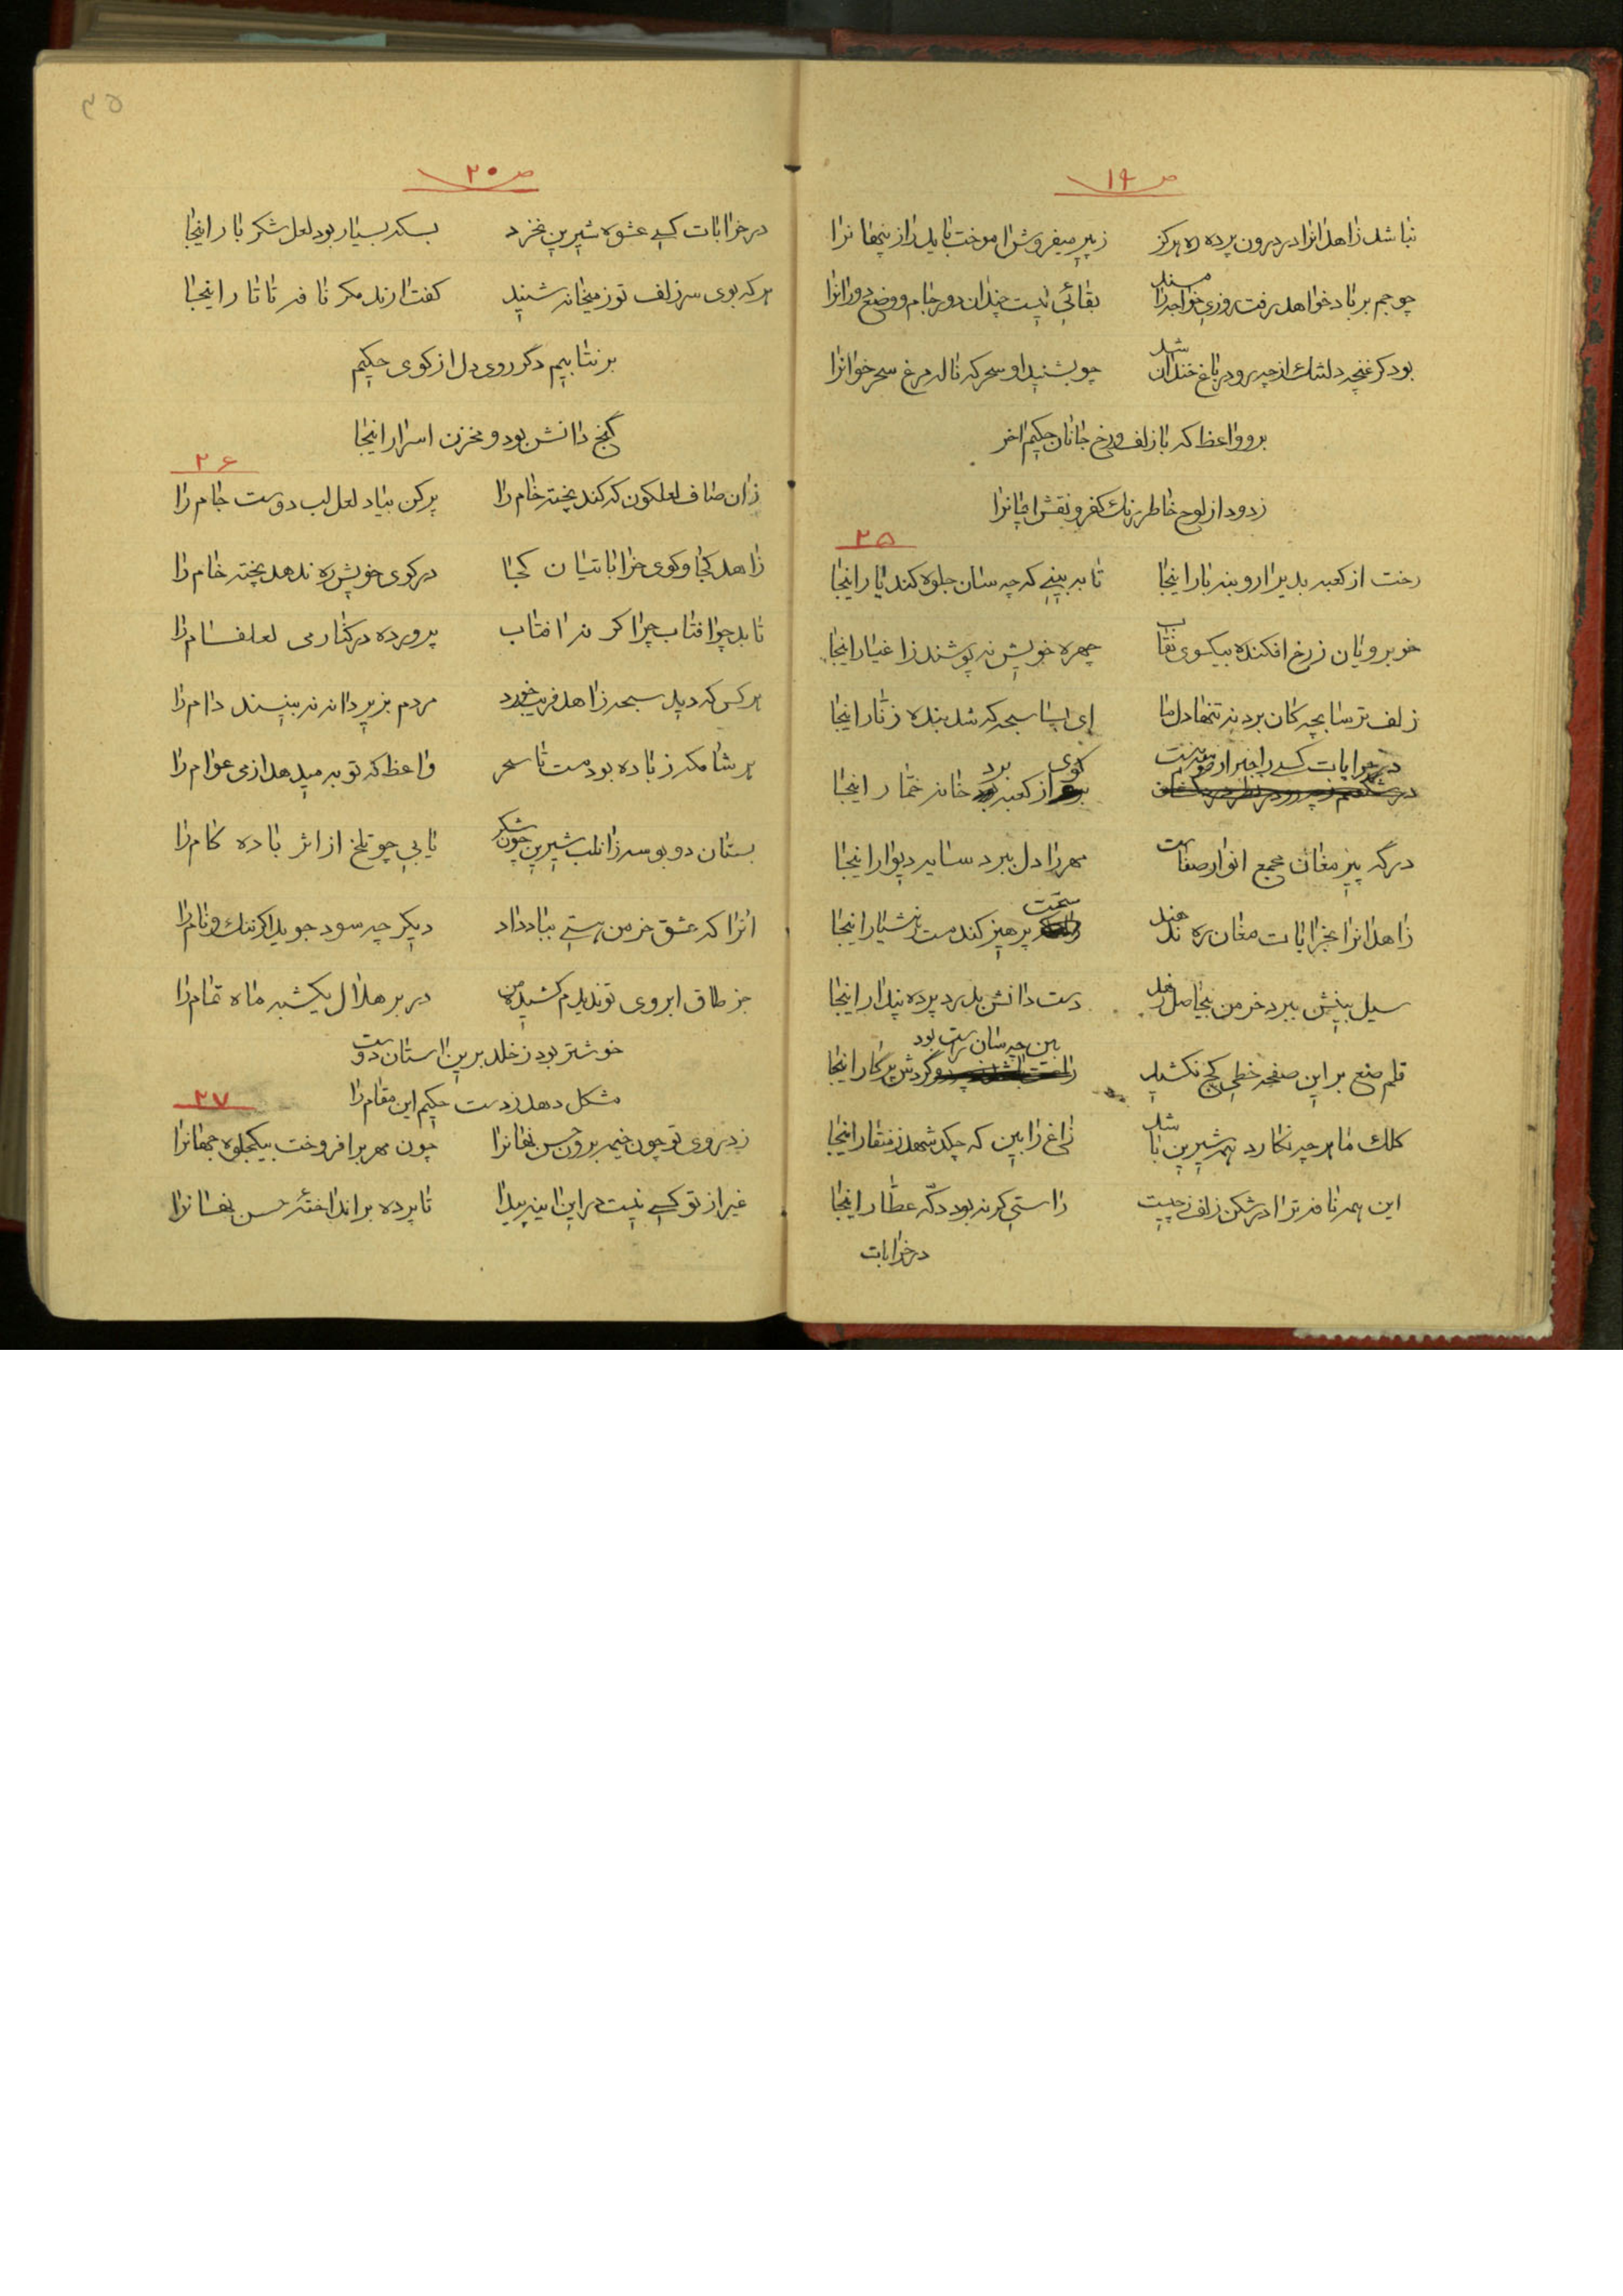 ص ۱۹
نباشد زاهدانرا در درون پرده ره هرگز
ز پیر میفروش اموخت باید راز پنهانرا
چو جم بر باد خواهد رفت روزی خواجه را مسند
بقائی نیست چندان دور جام و وضع دورانرا
بود گر غنچه دلتنک از چه رو در باغ خندان شد
چو بشنید او سحر که ناله مرغ سحر خوانرا
برو واعظ که با زلف و رخ جانان حکیم اخر
زدود از لوح خاطر زنک کفر و نقش ایمانرا
۲۵
رخت از کعبه بدیر ار و بنه بار اینجا
تا به بینی که چه سان جلوه کند یار اینجا
خوبرویان ز رخ افکنده بیکسوی نقاب
چهره خویش نه پوشند ز اغیار اینجا
زلف ترسابچه کان برد نه تنها دل ما
ای بسا سبحه که شد بنده زنار اینجا
در خرابات کسی را خبر از صورت نیست
از کعبه برد خانه خمار اینجا
درگه پیر مغان مجمع انوار صفاست
مهر را دل ببرد سایه دیوار اینجا
زاهدانرا بخرابات مغان ره ندهند
سخت پرهیز کند مست ز هشیار اینجا
سیل بینش ببرد خرمن بیحاصل عقل
دست دانش بدرد پرده پندار اینجا
قلم صنع بر این صفحه خطی کج نکشید
بین چه سان راست بود گردش پرکار اینجا
کلک ما هر چه نکارد همه شیرین باشد
زاغ را بین که چکد شهد ز منقار اینجا
این همه نافه ترا در شکن زلف ز چیست
راستی گر نه بود دکه عطار اینجا
در خرابات
ص ۲۰
در خرابات کسی عشوه شیرین نخرد
بسکه بسیار بود لعل شکر بار اینجا
هر که بوی سر زلف تو ز میخانه شنید
کفت ارند مکر نافه تاتار اینجا
بر نتابیم دگر روی دل از کوی حکیم
گنج دانش بود و مخزن اسرار اینجا
۲۶
زان صاف لعلکون که کند پخته خام را
پر کن بیاد لعل لب دوست جام را
زاهد کجا و کوی خراباتیان کجا
در کوی خویش ره ندهد پخته خام را
تابد چو افتاب چرا گر نه افتاب
پرورده در کنار می لعلفام را
هر کس که دید سبحه زاهد فریب خورد
مردم بزیر دانه نه بینند دام را
هر شا مکه ز باده بود مست تا سحر
واعظ که توبه میدهد از می عوام را
بستان دو بوسه زانلب شیرین چون شکر
یابی چو تلخ از اثر باده کام را
انرا که عشق خرمن هستی بباد داد
دیکر چه سود جوید اگر ننک و نام را
جز طاق ابروی تو ندیدم کشیده من
در بر هلال یکشبه ماه تمام را
خوشتر بود ز خلد برین استان دوست
مشکل دهد ز دست حکیم این مقام را
۲۷
زد روی تو چون خیمه برون حسن نهانرا
چون مهر برافروخت بیکجلوه جهانرا
غیر از تو کسی نیست در این اینه پیدا
تا پرده برانداختهٔ حسن نهانرا